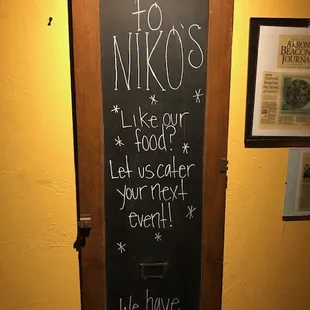 to
NIKO'S
Like our
food?
Let us cater
your next
event!
We have
AKRON
BEACON
JOURNAL